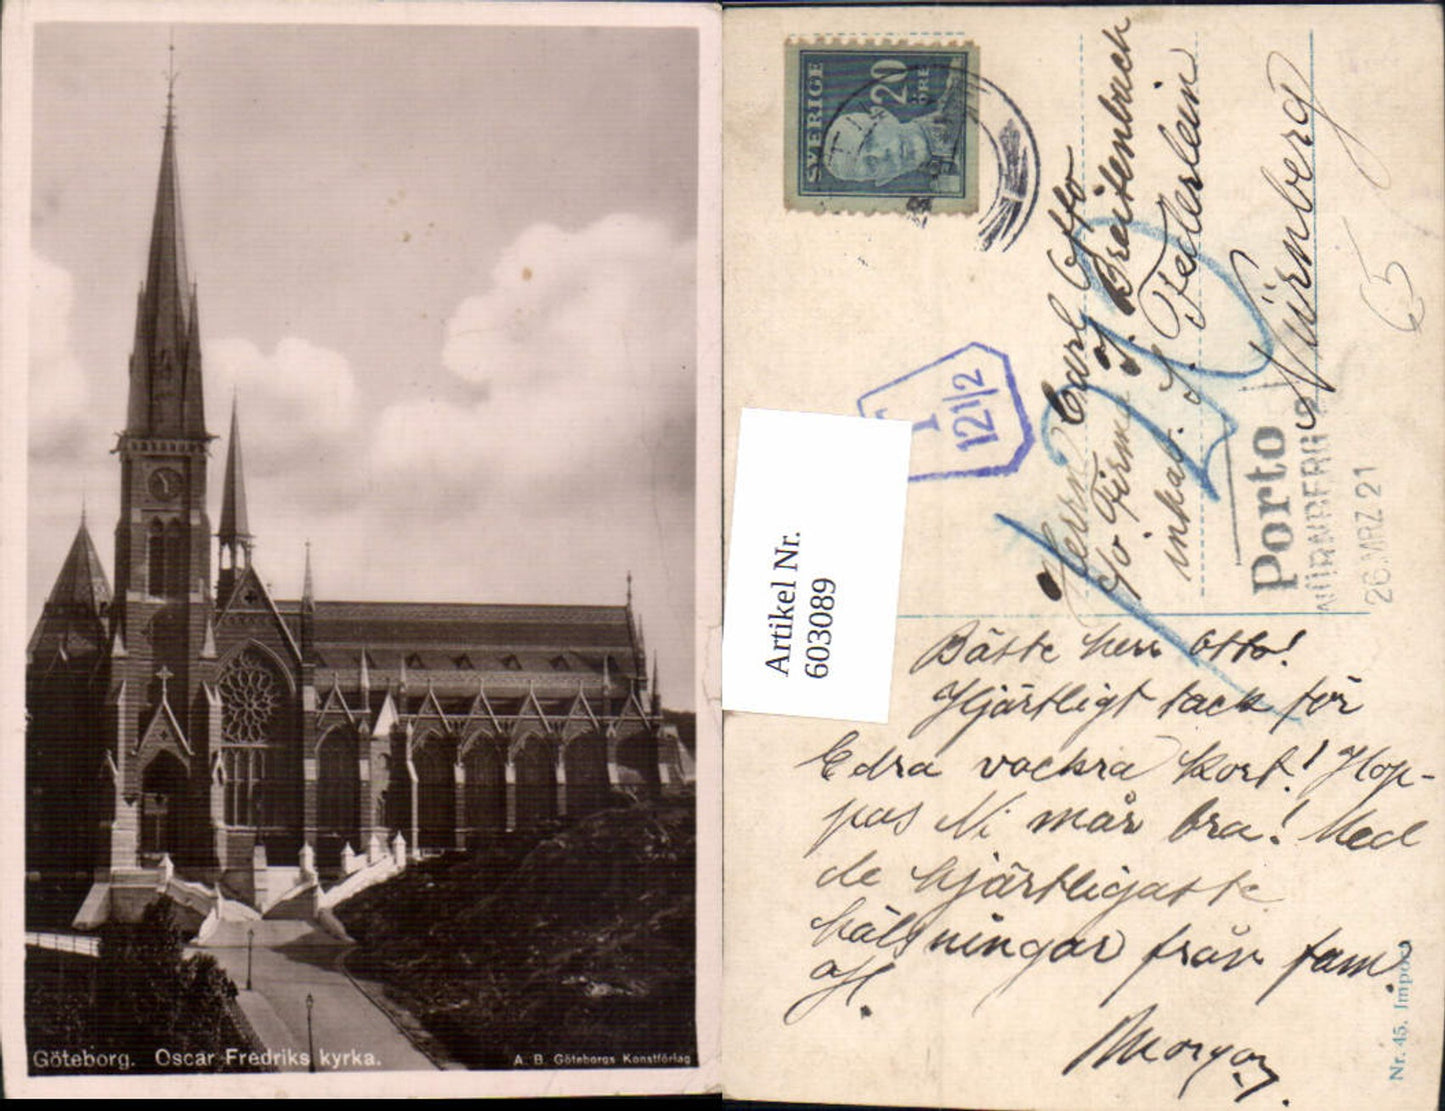 Göteborg. Oscar Fredriks kyrka.
A. B. Göteborgs Konstförlag
SVERIGE
20
ÖRE
T
12 1/2
Artikel Nr.
603089
Herrn Carl Otto
c/o Firma J. Breitenbach
inhab. J. Federlein
Nürnberg
20
65
Porto
NÜRNBERG
26. MRZ 21
Bäste herr Otto!
Hjärtligt tack för
Edra vackra kort! Hop-
pas Ni mår bra! Med
de hjärtligaste
hälsningar från fam.
Nr. 45. Import